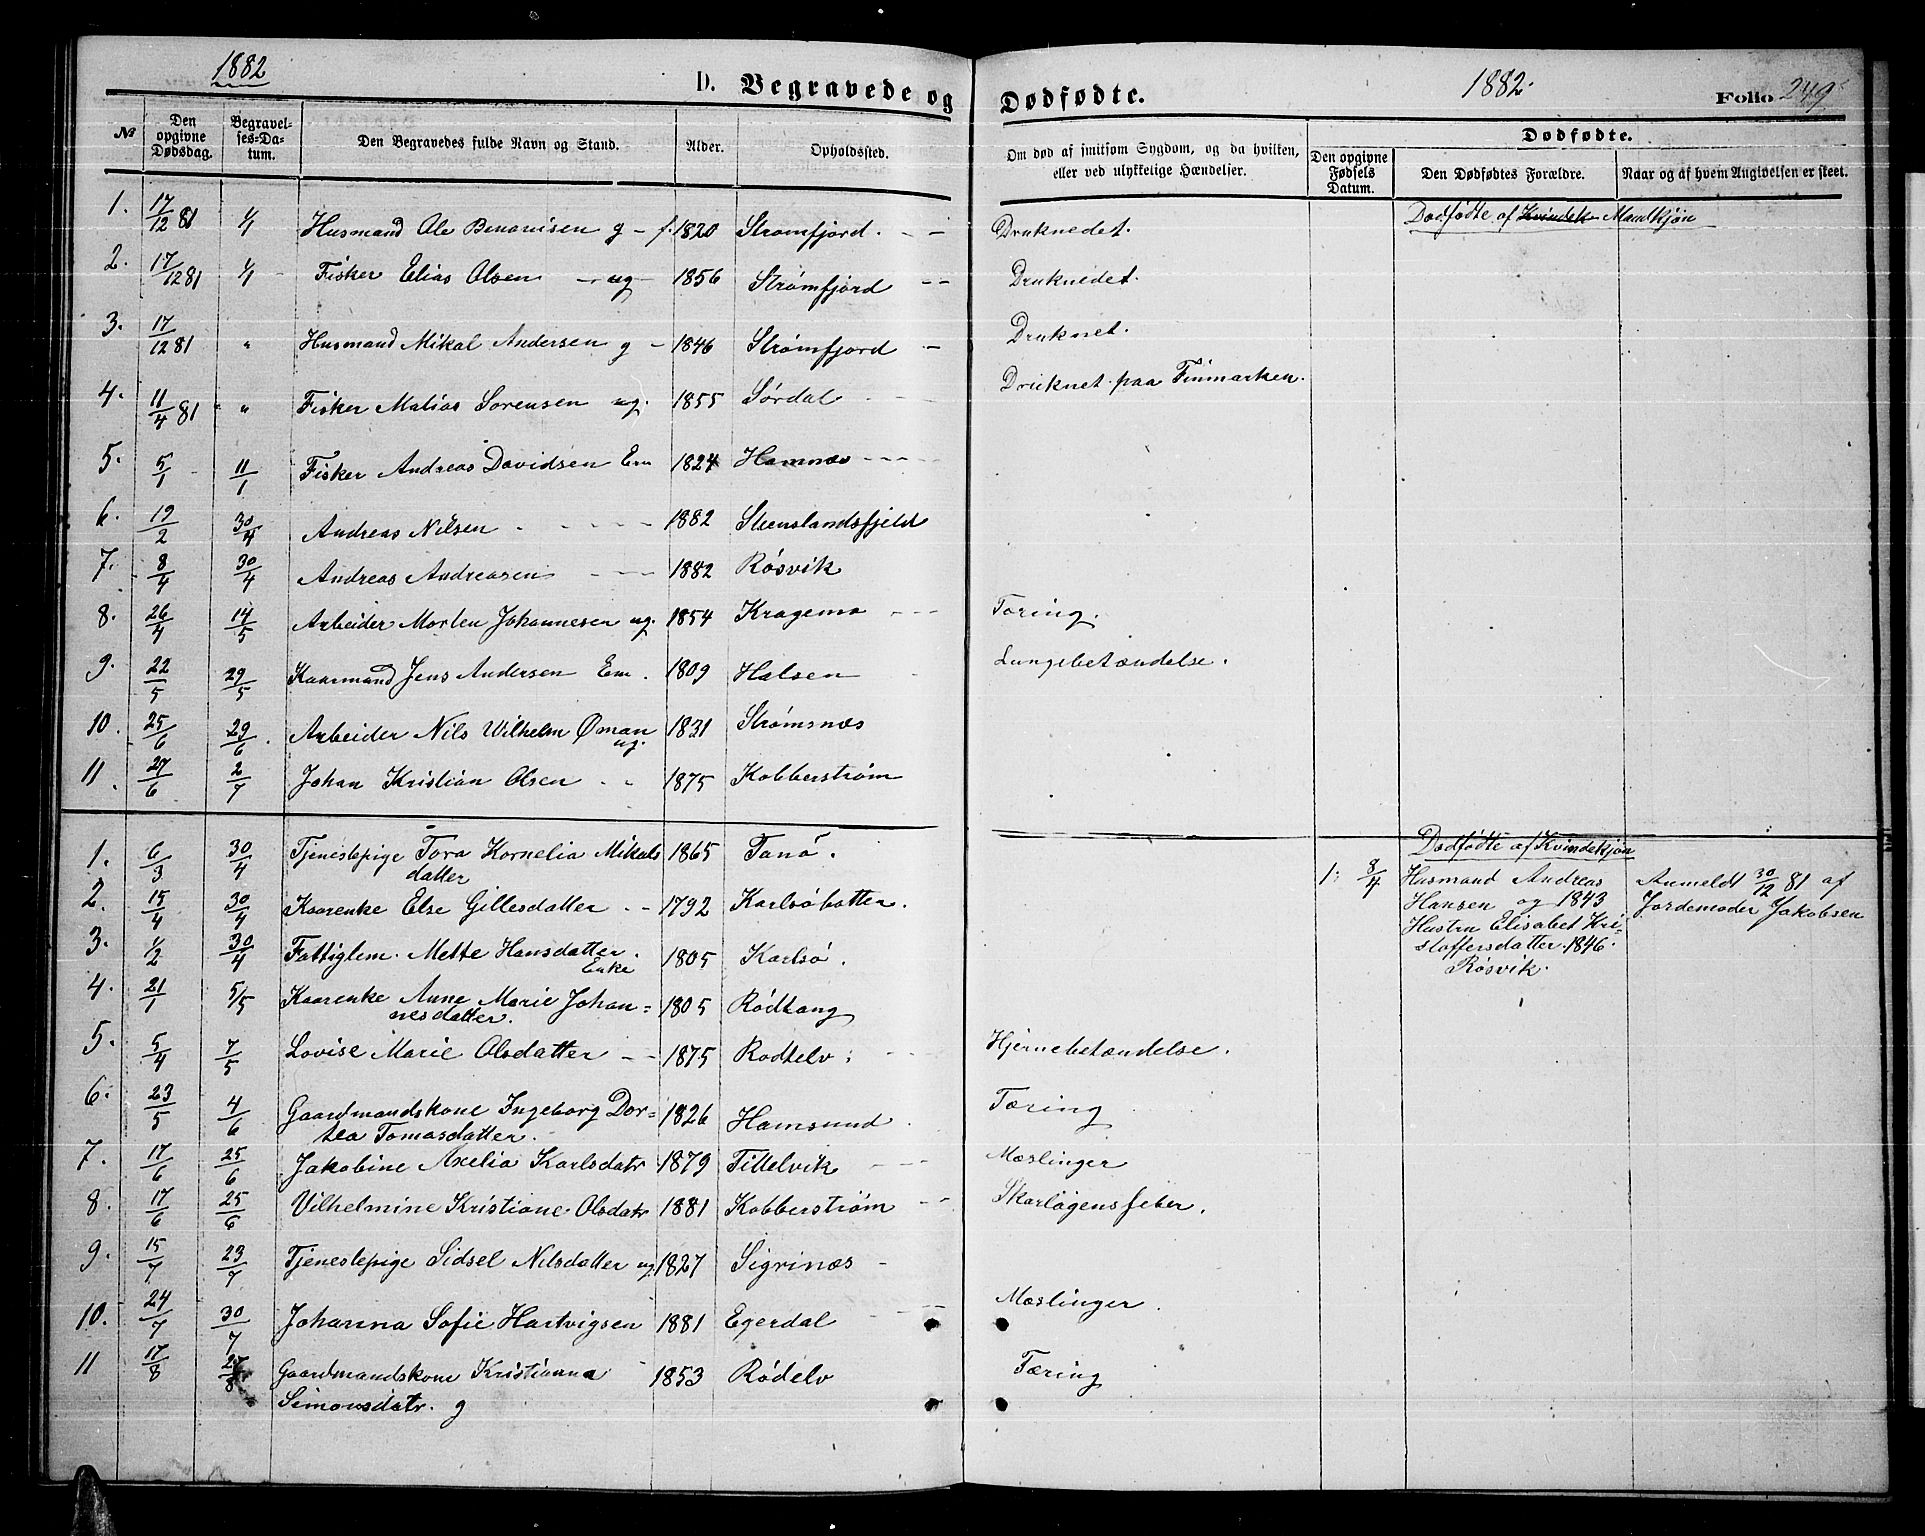 1882
D. Begravede og
Dødfødte.
1882.
Folio 249
№
Den opgivne Dødsdag.
Begravelses-Datum.
Den Begravedes fulde Navn og Stand.
Alder.
Opholdssted.
Om død af smitsom Sygdom, og da hvilken, eller ved ulykkelige Hændelser.
Den opgivne Fødsels Datum.
Dødfødte.
Den Dødfødtes Forældre.
Naar og af hvem Angivelsen er skeet.
Dødfødte af Kvindek Mandkjøn
1. 17/12 81 1/1 Husmand Ole Benonisen g - f. 1820 Strømfjord. Druknedet.
2. 17/12 81 1/1 Fisker Elias Olsen ug 1856 Strømfjord Druknedet.
3. 17/12 81 " Husmand Mikal Andersen g 1846 Strømfjord Druknet.
4. 11/4 81 " Fisker Matias Sørensen ug. 1855 Sørdal Druknet paa Finmarken.
5. 5/1 11/1 Fisker Andreas Davidsen Em 1824 Hamnæs
6. 19/2 30/4 Andreas Nilsen 1882 Stenslandsfjeld
7. 8/4 30/4 Andreas Andreasen 1882 Røsvik
8. 26/4 14/5 Arbeider Morten Johannesen ug. 1854 Kragemo Tæring.
9. 22/5 29/5 Kaarmand Jens Andersen Em. 1809 Halsen Lungebetændelse.
10. 25/6 29/6. Arbeider Nils Wilhelm Øman ug. 1831 Strømsnæs
11. 27/6 2/7 Johan Kristian Olsen 1875 Kobberstrøm
Dødfødte af Kvindekjøn
1. 6/3 30/4 Tjenestepige Tora Kornelia Mikals
datter 1865 Tanö.
1. 8/4 Husmand Andreas
Hansen og 1843
Hustru Elisabet Kri-
stoffersdatter. 1846.
Røsvik.
Anmeldt 30/12 81 af
Jordemoder Jakobsen
2. 15/4 30/4 Kaarenke Else Gillesdatter 1792 Karlsöbotten.
3. 1/2 30/4 Fattiglem. Mette Hansdatter.
Enke 1805 Karlsö.
4. 21/1 5/5 Kaarenke Anne Marie Johan-
nesdatter. 1805 Rödtang
5. 5/4 7/5 Lovise Marie Olsdatter 1875 Rödtelv Hjernebetændelse.
6. 23/5 4/6 Gaardmandskone Ingeborg Dor-
tea Tomasdatter. 1826 Hamsund. Tæring
7. 17/6 25/6 Jakobine Axelia Karlsdatr 1879 Tittelvik Mæslinger
8. 17/6 25/6 Vilhelmine Kristiane Olsdatr 1881 Kobberstrøm Skarlagensfeber.
9. 15/7 23/7 Tjenestepige Sidsel Nilsdatter ug 1827 Sigrinæs
10. 24/7 30/7 Johanna Sofie Hartvigsen 1881 Egerdal Mæslinger.
11 17/8 27/8 Gaardmandskone Kristianna
Simonsdatr. g 1853 Rödelv Tæring